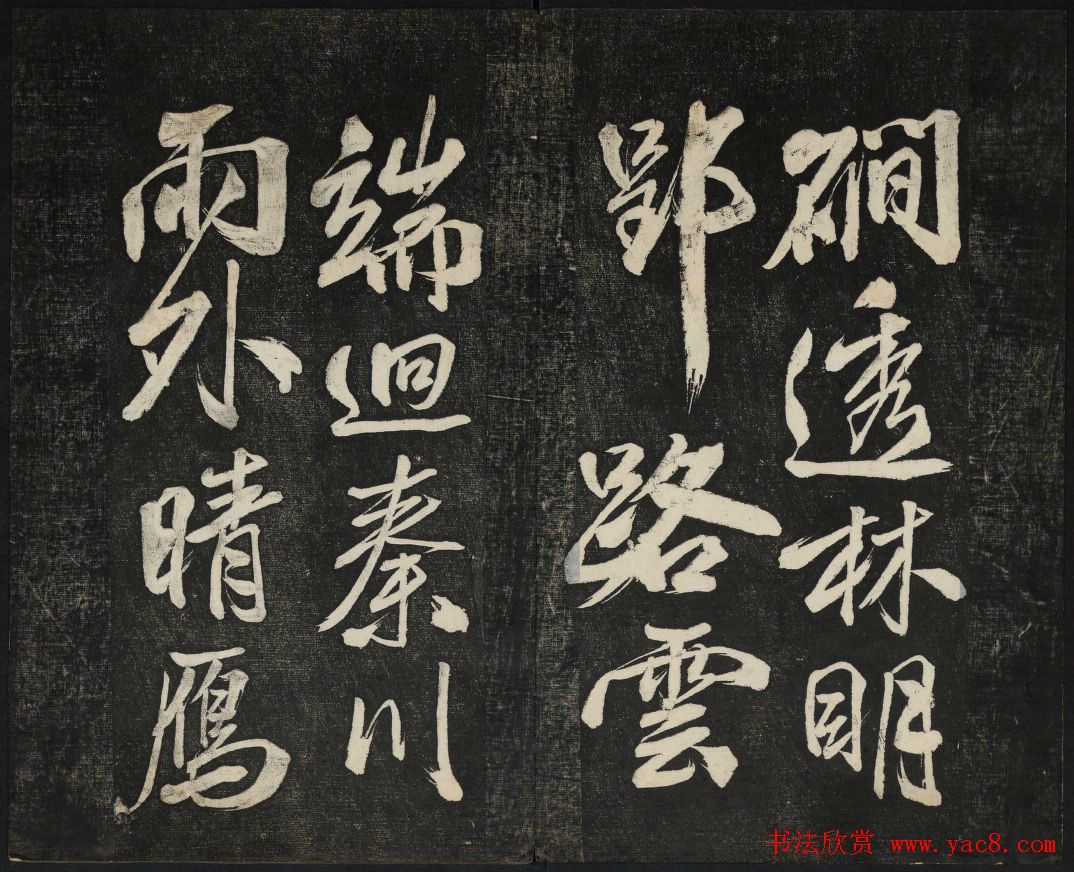 磵透林明
郢路雲
端迴秦川
雨外晴鴈
书法欣赏 www.yac8.com